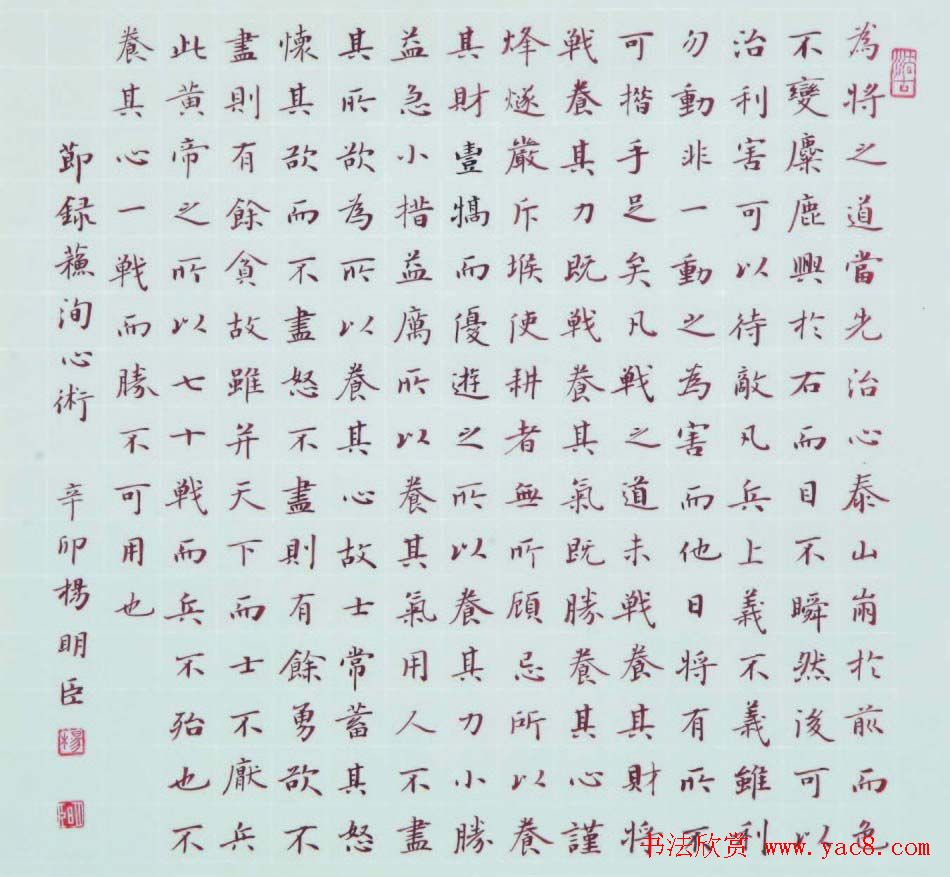 為將之道當先治心泰山崩於前而色
不變麋鹿興於右而目不瞬然後可以
治利害可以待敵凡兵上義不義雖利
勿動非一動之為害而他日將有所不
可措手足矣凡戦之道未戦養其財將
戦養其力既戦養其氣既勝養其心謹
烽燧嚴斥堠使耕者無所顧忌所以養
其財壹犒而優遊之所以養其力小勝
益急小措益厲所以養其氣用人不盡
其所欲為所以養其心故士常蓄其怒
懷其欲而不盡怒不盡則有餘勇欲不
盡則有餘貪故雖并天下而士不厭兵
此黃帝之所以七十戦而兵不殆也不
養其心一戦而勝不可用也
節録蘇洵心術 辛卯楊明臣
书法欣赏 www.yac8.com